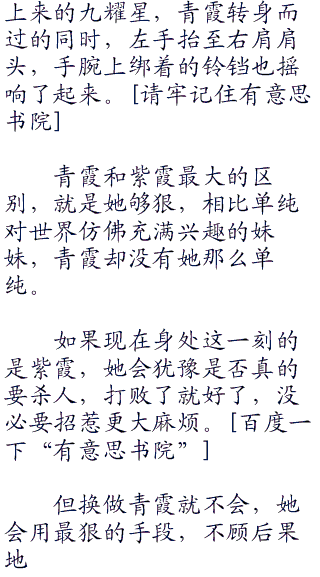 上来的九耀星，青霞转身而
过的同时，左手抬至右肩肩
头，手腕上绑着的铃铛也摇
响了起来。[请牢记住有意思
书院]
青霞和紫霞最大的区
别，就是她够狠，相比单纯
对世界仿佛充满兴趣的妹
妹，青霞却没有她那么单
纯。
如果现在身处这一刻的
是紫霞，她会犹豫是否真的
要杀人，打败了就好了，没
必要招惹更大麻烦。[百度一
下“有意思书院”]
但换做青霞就不会，她
会用最狠的手段，不顾后果
地